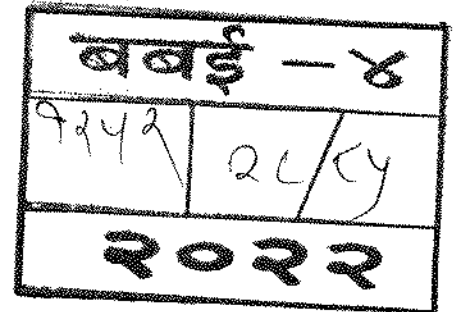 बबई - ४
१२५२ २८/८५
२०२२